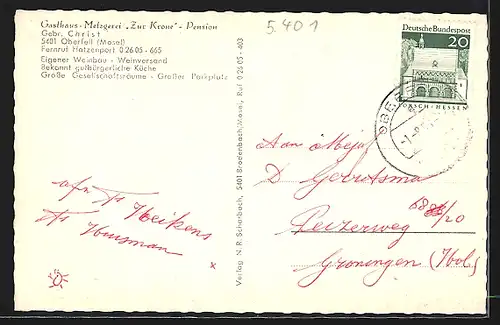 Gasthaus - Metzgerei „Zur Krone" - Pension
Gebr. Christ
5401 Oberfell (Mosel)
Fernruf Hatzenport 0 26 05 - 665
Eigener Weinbau - Weinversand
Bekannt gutbürgerliche Küche
Große Gesellschaftsräume - Großer Parkplatz
5.401
Deutsche Bundespost
20
LORSCH - HESSEN
Verlag N. R. Schönbach, 5401 Brodenbach/Mosel, Ruf 0 26 05 - 403
Aan Mej
D Gerbtsma
Peizerweg 68/20
Groningen (Hol.)
afz. Ts Heikens
Ts Huisman
x